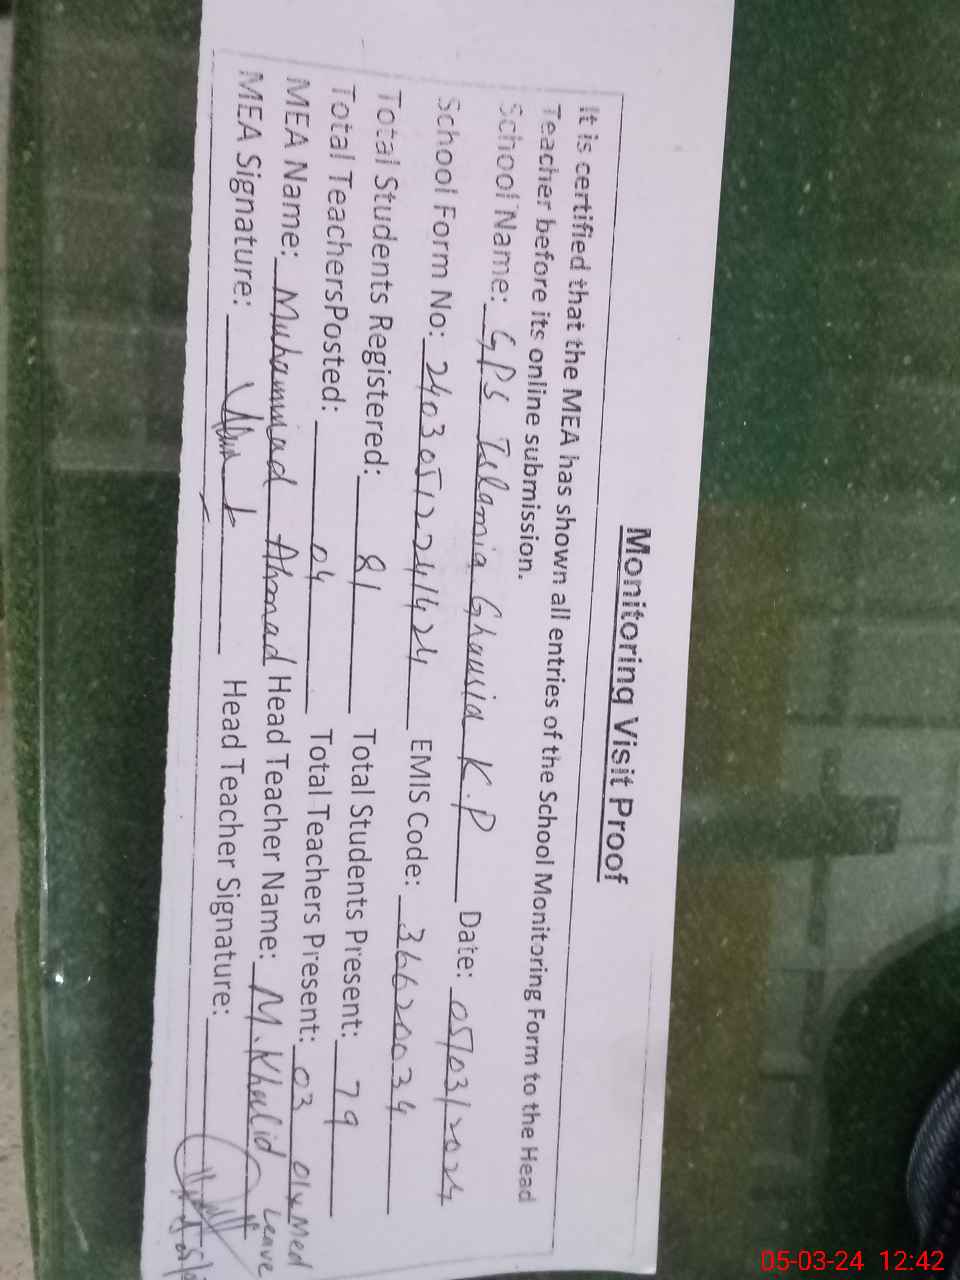 Monitoring Visit Proof
It is certified that the MEA has shown all entries of the School Monitoring Form to the Head
Teacher before its online submission.
School Name: GPS Islamia Ghausia K.P Date: 05/03/2024
School Form No: 24030512241424 EMIS Code: 36620034
Total Students Registered: 81 Total Students Present: 79
Total TeachersPosted: 04 Total Teachers Present: 03 01x Med
Leave
MEA Name: Muhammad Ahmad Head Teacher Name: M. Khalid
MEA Signature: Head Teacher Signature:
05-03-24 12:42